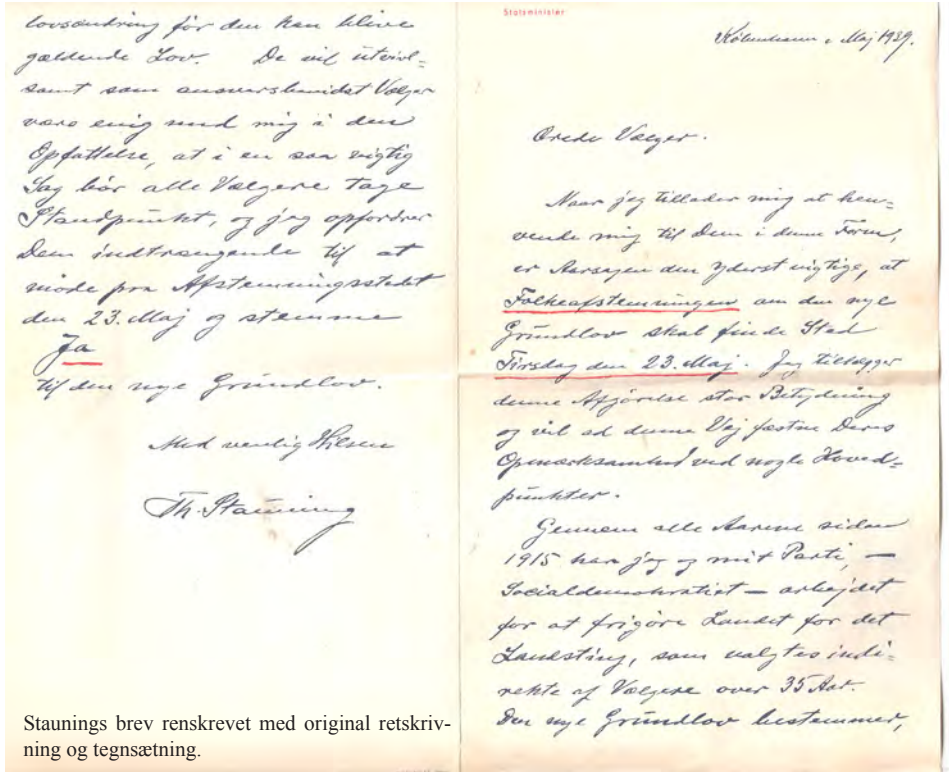 lovsændring för den kan blive
gældende Lov. De vil utvivl=
somt som ansvarsbevidst Vælger
være enig med mig i den
Opfattelse, at i en saa vigtig
Sag bör alle Vælgere tage
Standpunkt, og jeg opfordrer
Dem indtrængende til at
möde paa Afstemningsstedet
den 23. Maj og stemme
Ja
til den nye Grundlov.
Med venlig Hilsen
Th. Stauning
Staunings brev renskrevet med original retskriv-
ning og tegnsætning.
Statsminister
København, Maj 1939.
Ærede Vælger.
Naar jeg tillader mig at hen=
vende mig til Dem i denne Form,
er Aarsagen den yderst vigtige, at
Folkeafstemningen om den nye
Grundlov skal finde Sted
Tirsdag den 23. Maj. Jeg tillægger
denne Afgörelse stor Betydning
og vil ad denne Vej fæstne Deres
Opmærksomhed ved nogle Hoved=
punkter.
Gennem alle Aarene siden
1915 har jeg og mit Parti, —
Socialdemokratiet — arbejdet
for at frigöre Landet for det
Landsting, som valgtes indi=
rekte af Vælgere over 35 Aar.
Den nye Grundlov bestemmer,